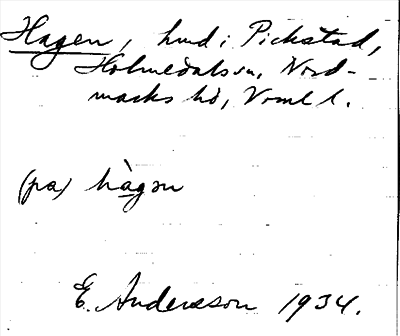 Hagen, hmd i Pickstad,
Holmedals sn, Nord-
marks hd, Vrml l.
(pa) hàgən
E. Andersson 1934.